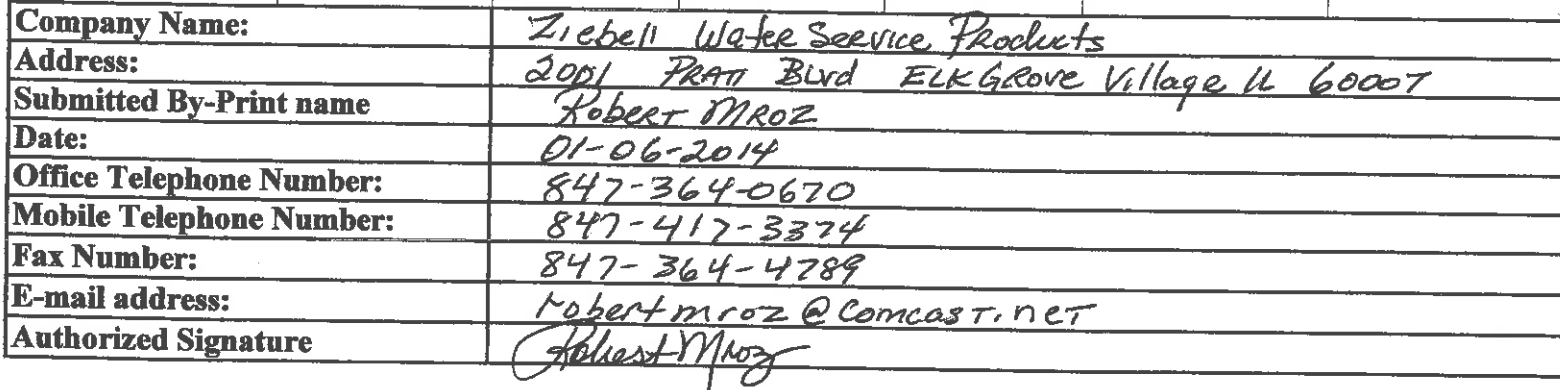 Company Name: Ziebell Water Service Products
Address: 2001 Pratt Blvd Elk Grove Village IL 60007
Submitted By-Print name Robert Mroz
Date: 01-06-2014
Office Telephone Number: 847-364-0670
Mobile Telephone Number: 847-417-3374
Fax Number: 847-364-4789
E-mail address: robertmroz@comcast.net
Authorized Signature Robert Mroz